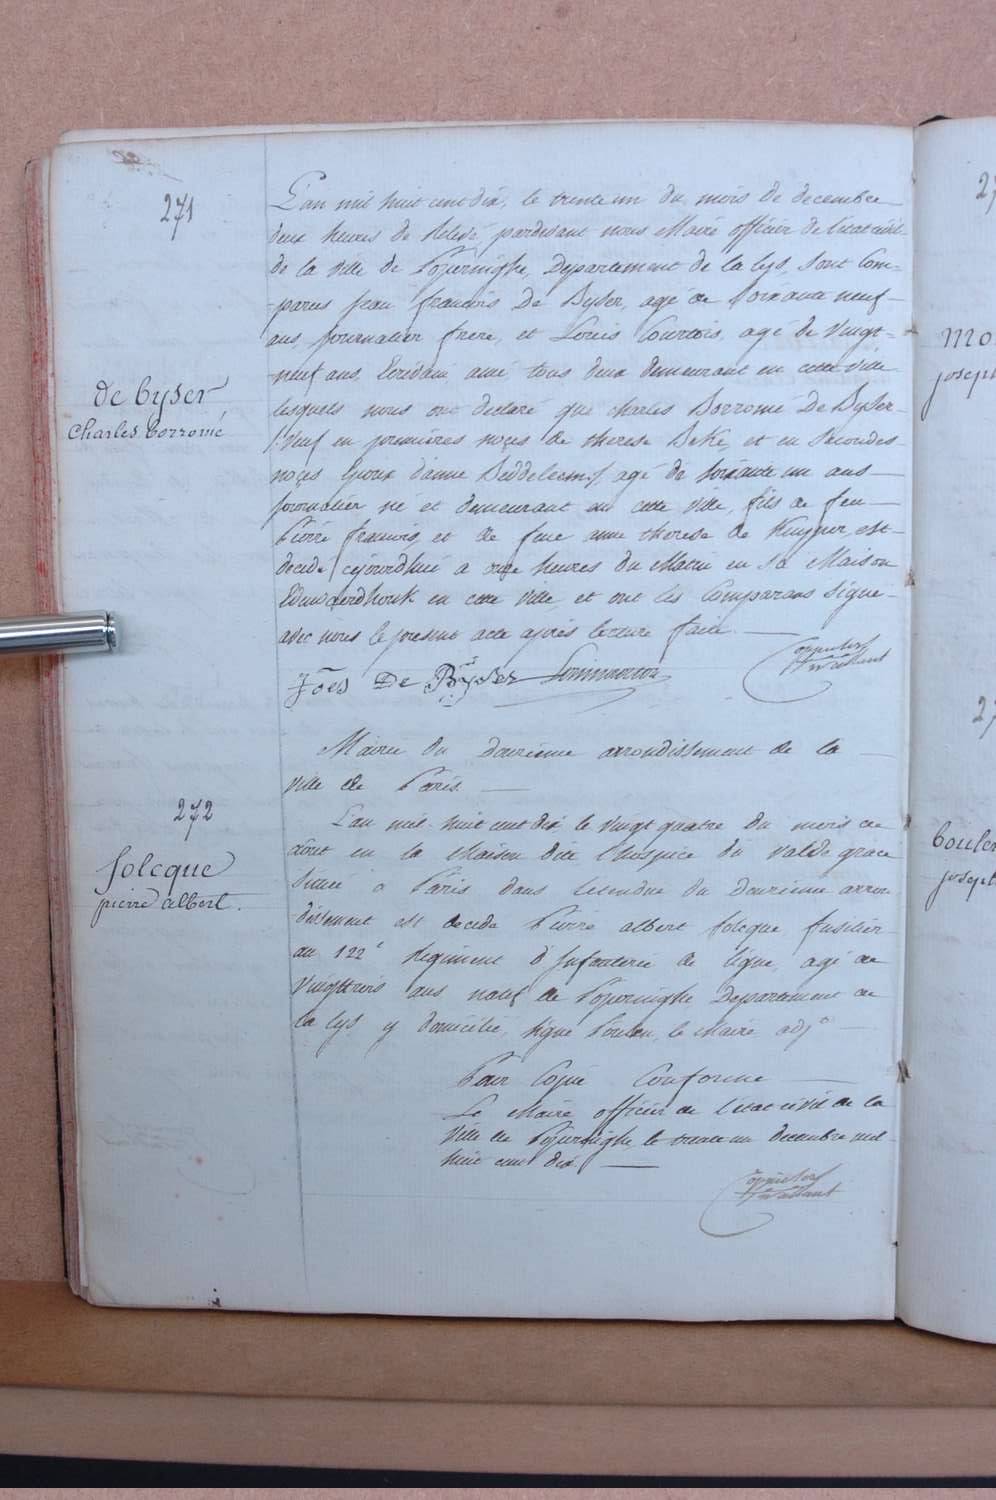 271
de Byser
Charles Borromé
L'an mil huit cent dix, le trente un du mois de decembre
deux heures de Relevé, pardevant nous Maire officier de l'etat civil
de la ville de Poperinghe, Departement de la lys, sont Com-
-parus jean francois De Byser, agé de soixante neuf
ans, journalier frere, et Louis Courtois, agé de vingt-
neuf ans, Ecrivain ami, tous deux demeurant en cette ville
lesquels nous ont declaré que charles Borromé De Byser
/:Veuf en premières noçes de therese Beke, et en secondes
noçes Epoux d'anne agé de soixante un ans
journalier né et demeurant en cette ville, fils de feu
Pierre francois, et de feue anne therese de Kuyper, est
decede cejourdhui a onze heures du Matin en sa Maison
en cette ville, et ont les Comparans signé
avec nous le present acte après lecture faite.
Joës De Byser
272
folcque
pierre albert.
Mairie du douzieme arrondissement de la
ville de Paris.
L'an mil huit cent dix le vingt quatre du mois de
aout en la Maison dite l'hospice du val de grace
Situé a Paris dans letendue du douzieme arron
dissement est decede Pierre albert folcque fusilier
au 122e Regiment d'Infanterie de ligne, agé de
Vingttrois ans natif de Poperinghe Departement de
la lys y domicilié, signé le Maire adjt
Pour Copie Conforme
Le Maire officier de l'etat civil de la
ville de Poperinghe, le trente un decembre mil
huit cent dix
27
Mo
joseph
27
boule
joseph